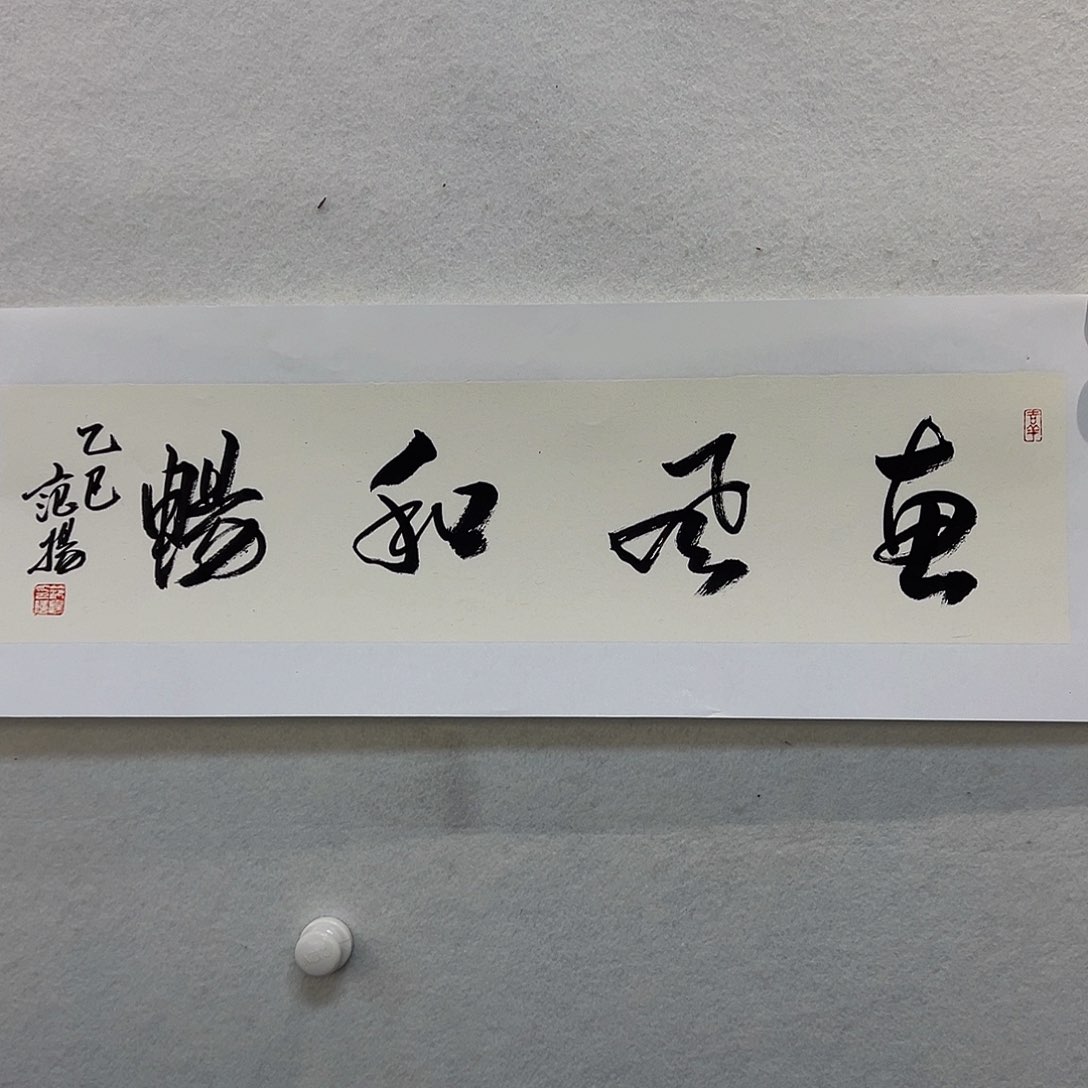 惠風和暢
乙巳
范揚
吉羊